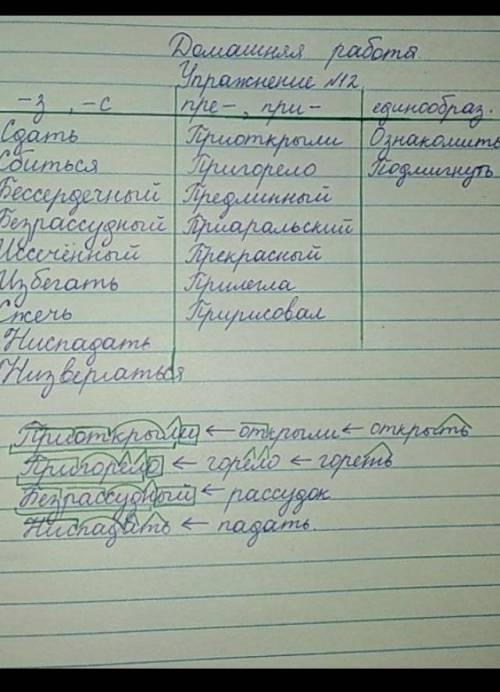 Домашняя работа.
Упражнение №12
-з, -с пре-, при- единообраз.
Сдать Приоткрыли Ознакомить
Сбиться Пригорело Подмигнуть
Бессердечный Предлинный
Безрассудный Приаральский
Иссечённый Прекрасный
Избегать Прилегла
Сжечь Пририсовал
Ниспадать
Низвергаться
Приоткрыли ← открыли ← открыть
Пригорело ← горело ← гореть
Безрассудный ← рассудок
Ниспадать ← падать.